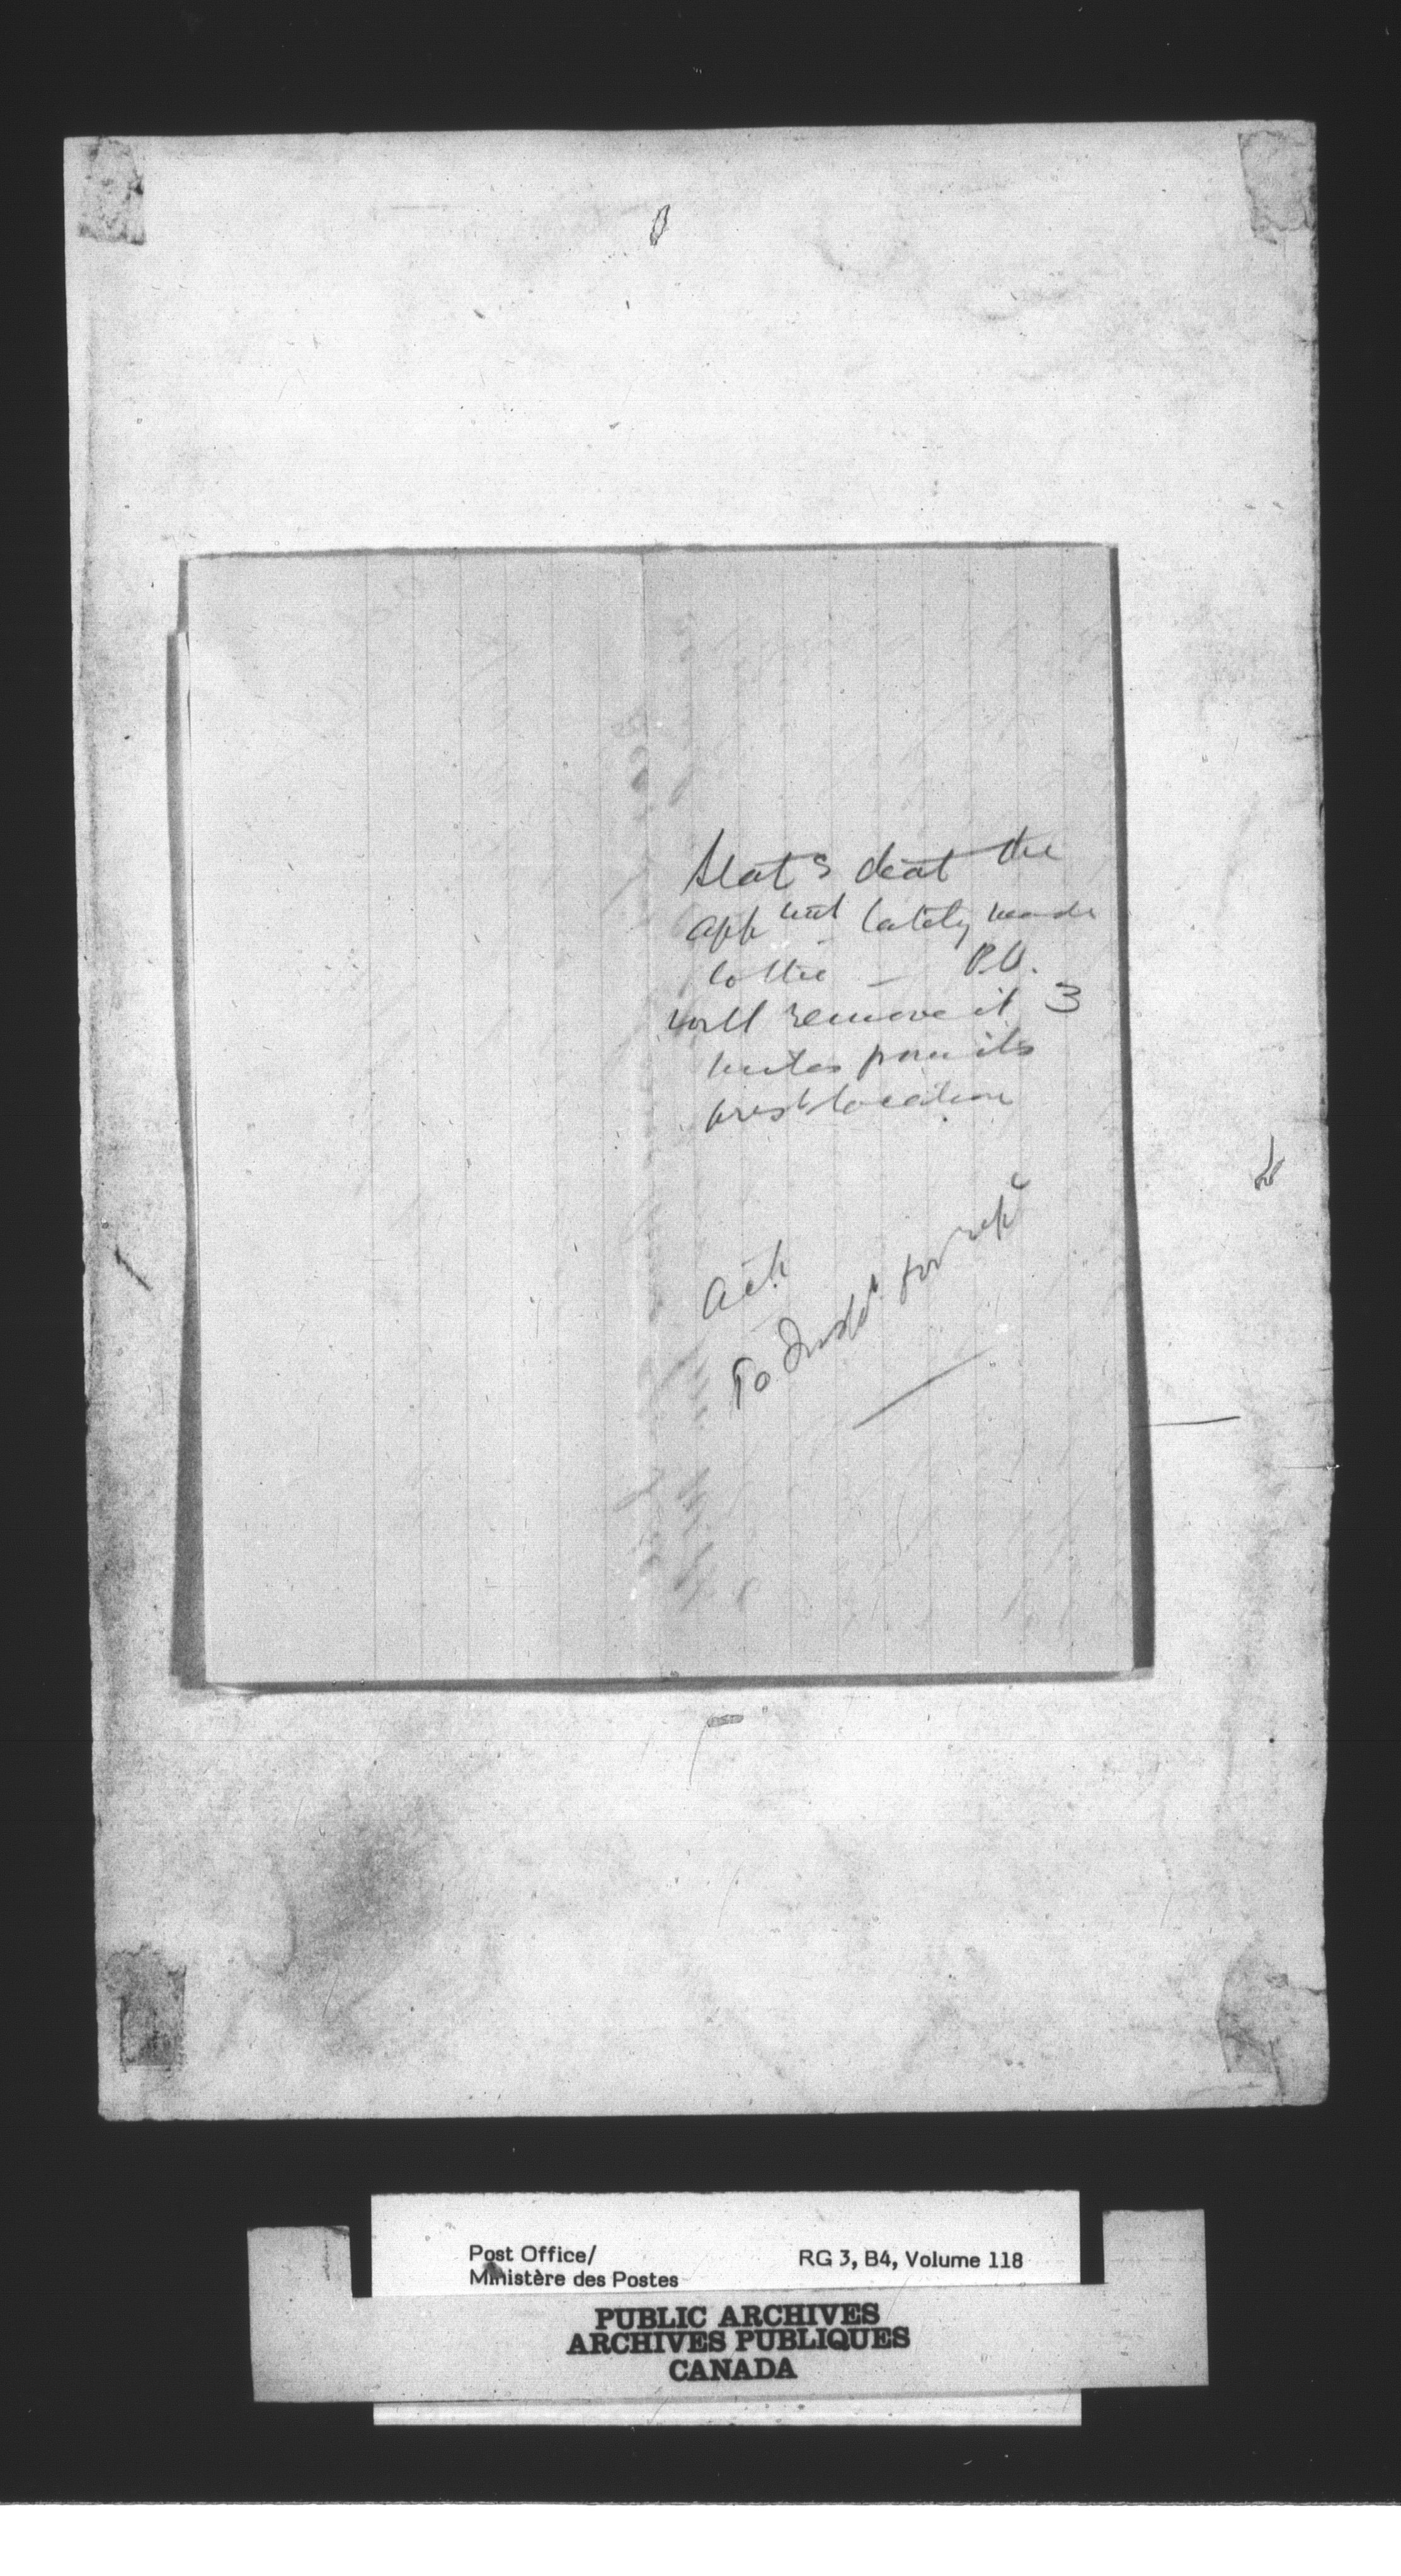 Stats that the
appmt lately made
to the — P.O.
will remove it 3
miles from its
prest location
Ack
To Inspr for rept
Post Office/
Ministère des Postes
RG 3, B4, Volume 118
PUBLIC ARCHIVES
ARCHIVES PUBLIQUES
CANADA